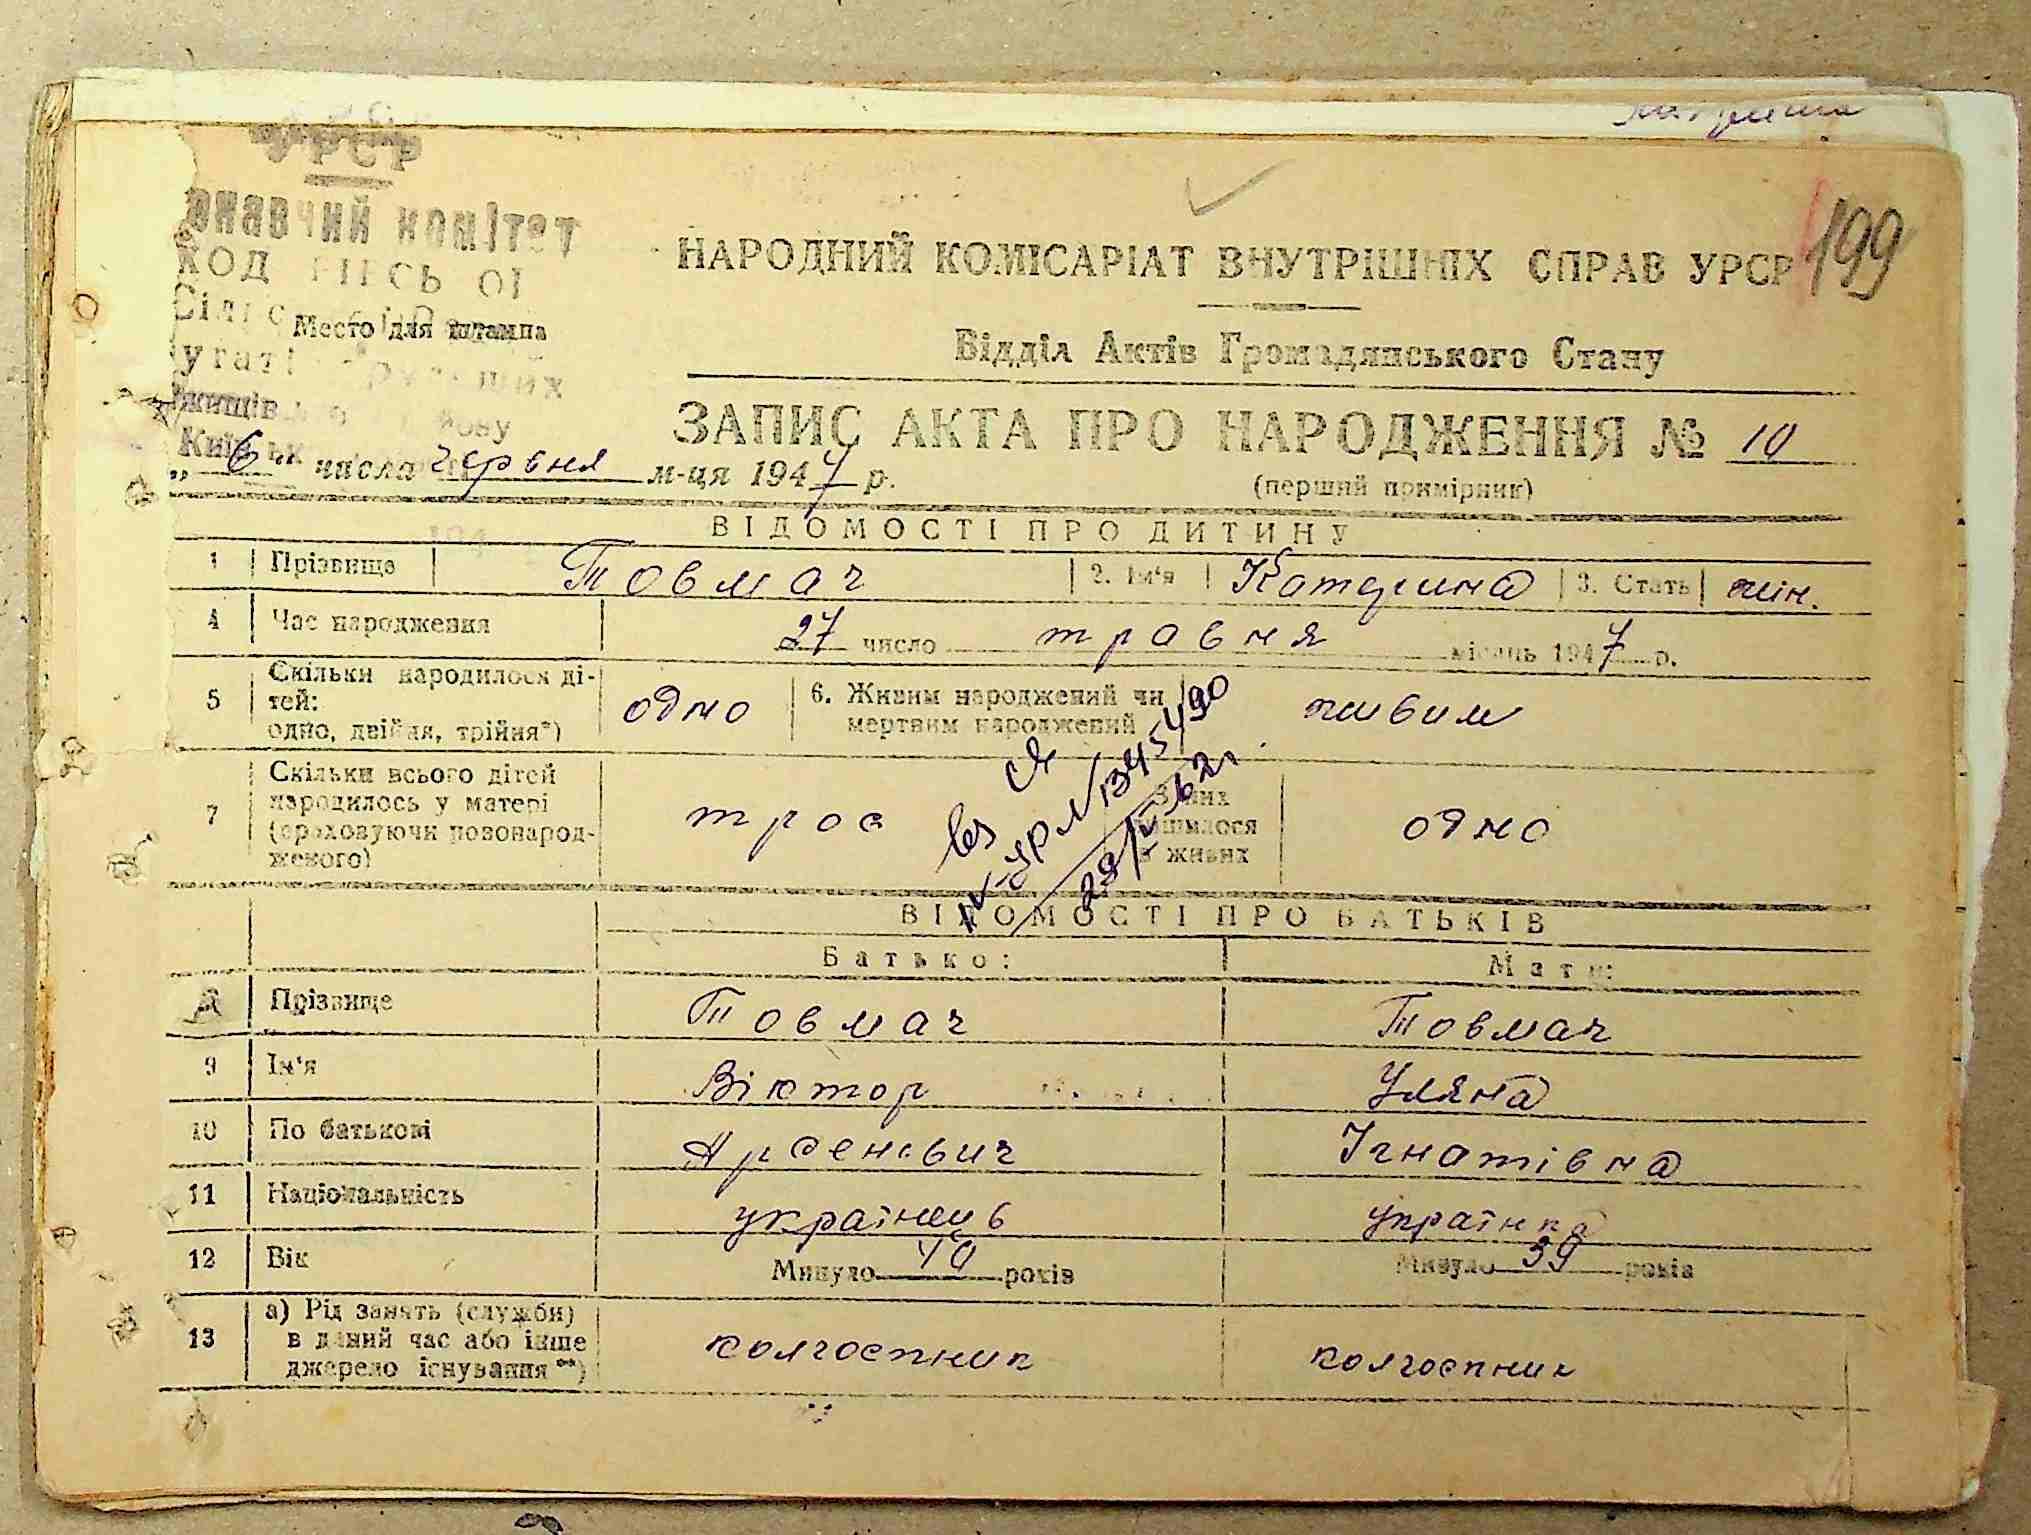 УРСР
199
онавчий комітет
НАРОДНИЙ КОМІСАРІАТ ВНУТРІШНІХ СПРАВ УРСР
Место для штампа
Відділ Актів Громадянського Стану
ЗАПИС АКТА ПРО НАРОДЖЕННЯ № 10
„ 6 " числа червня м-ця 1947 р.
(перший примірник)
ВІДОМОСТІ ПРО ДИТИНУ
1 Прізвище Товмач 2. Ім'я Катерина 3. Стать жін.
4 Час народження 27 число травня місяць 1947 р.
5 Скільки народилося дітей: одно, двійня, трійня*) одно 6. Живим народжений чи мертвим народжений живим
7 Скільки всього дітей народилось у матері (враховуючи новонародженого) троє З них лишилося в живих одно
ВІДОМОСТІ ПРО БАТЬКІВ
Батько: Мати:
Прізвище Товмач Товмач
9 Ім'я Віктор Уляна
10 По батькові Арсенєвич Ігнатівна
11 Національність українець українка
12 Вік Минуло 40 років Минуло 39 років
13 а) Рід занять (служби) в даний час або інше джерело існування**) колгоспник колгоспник